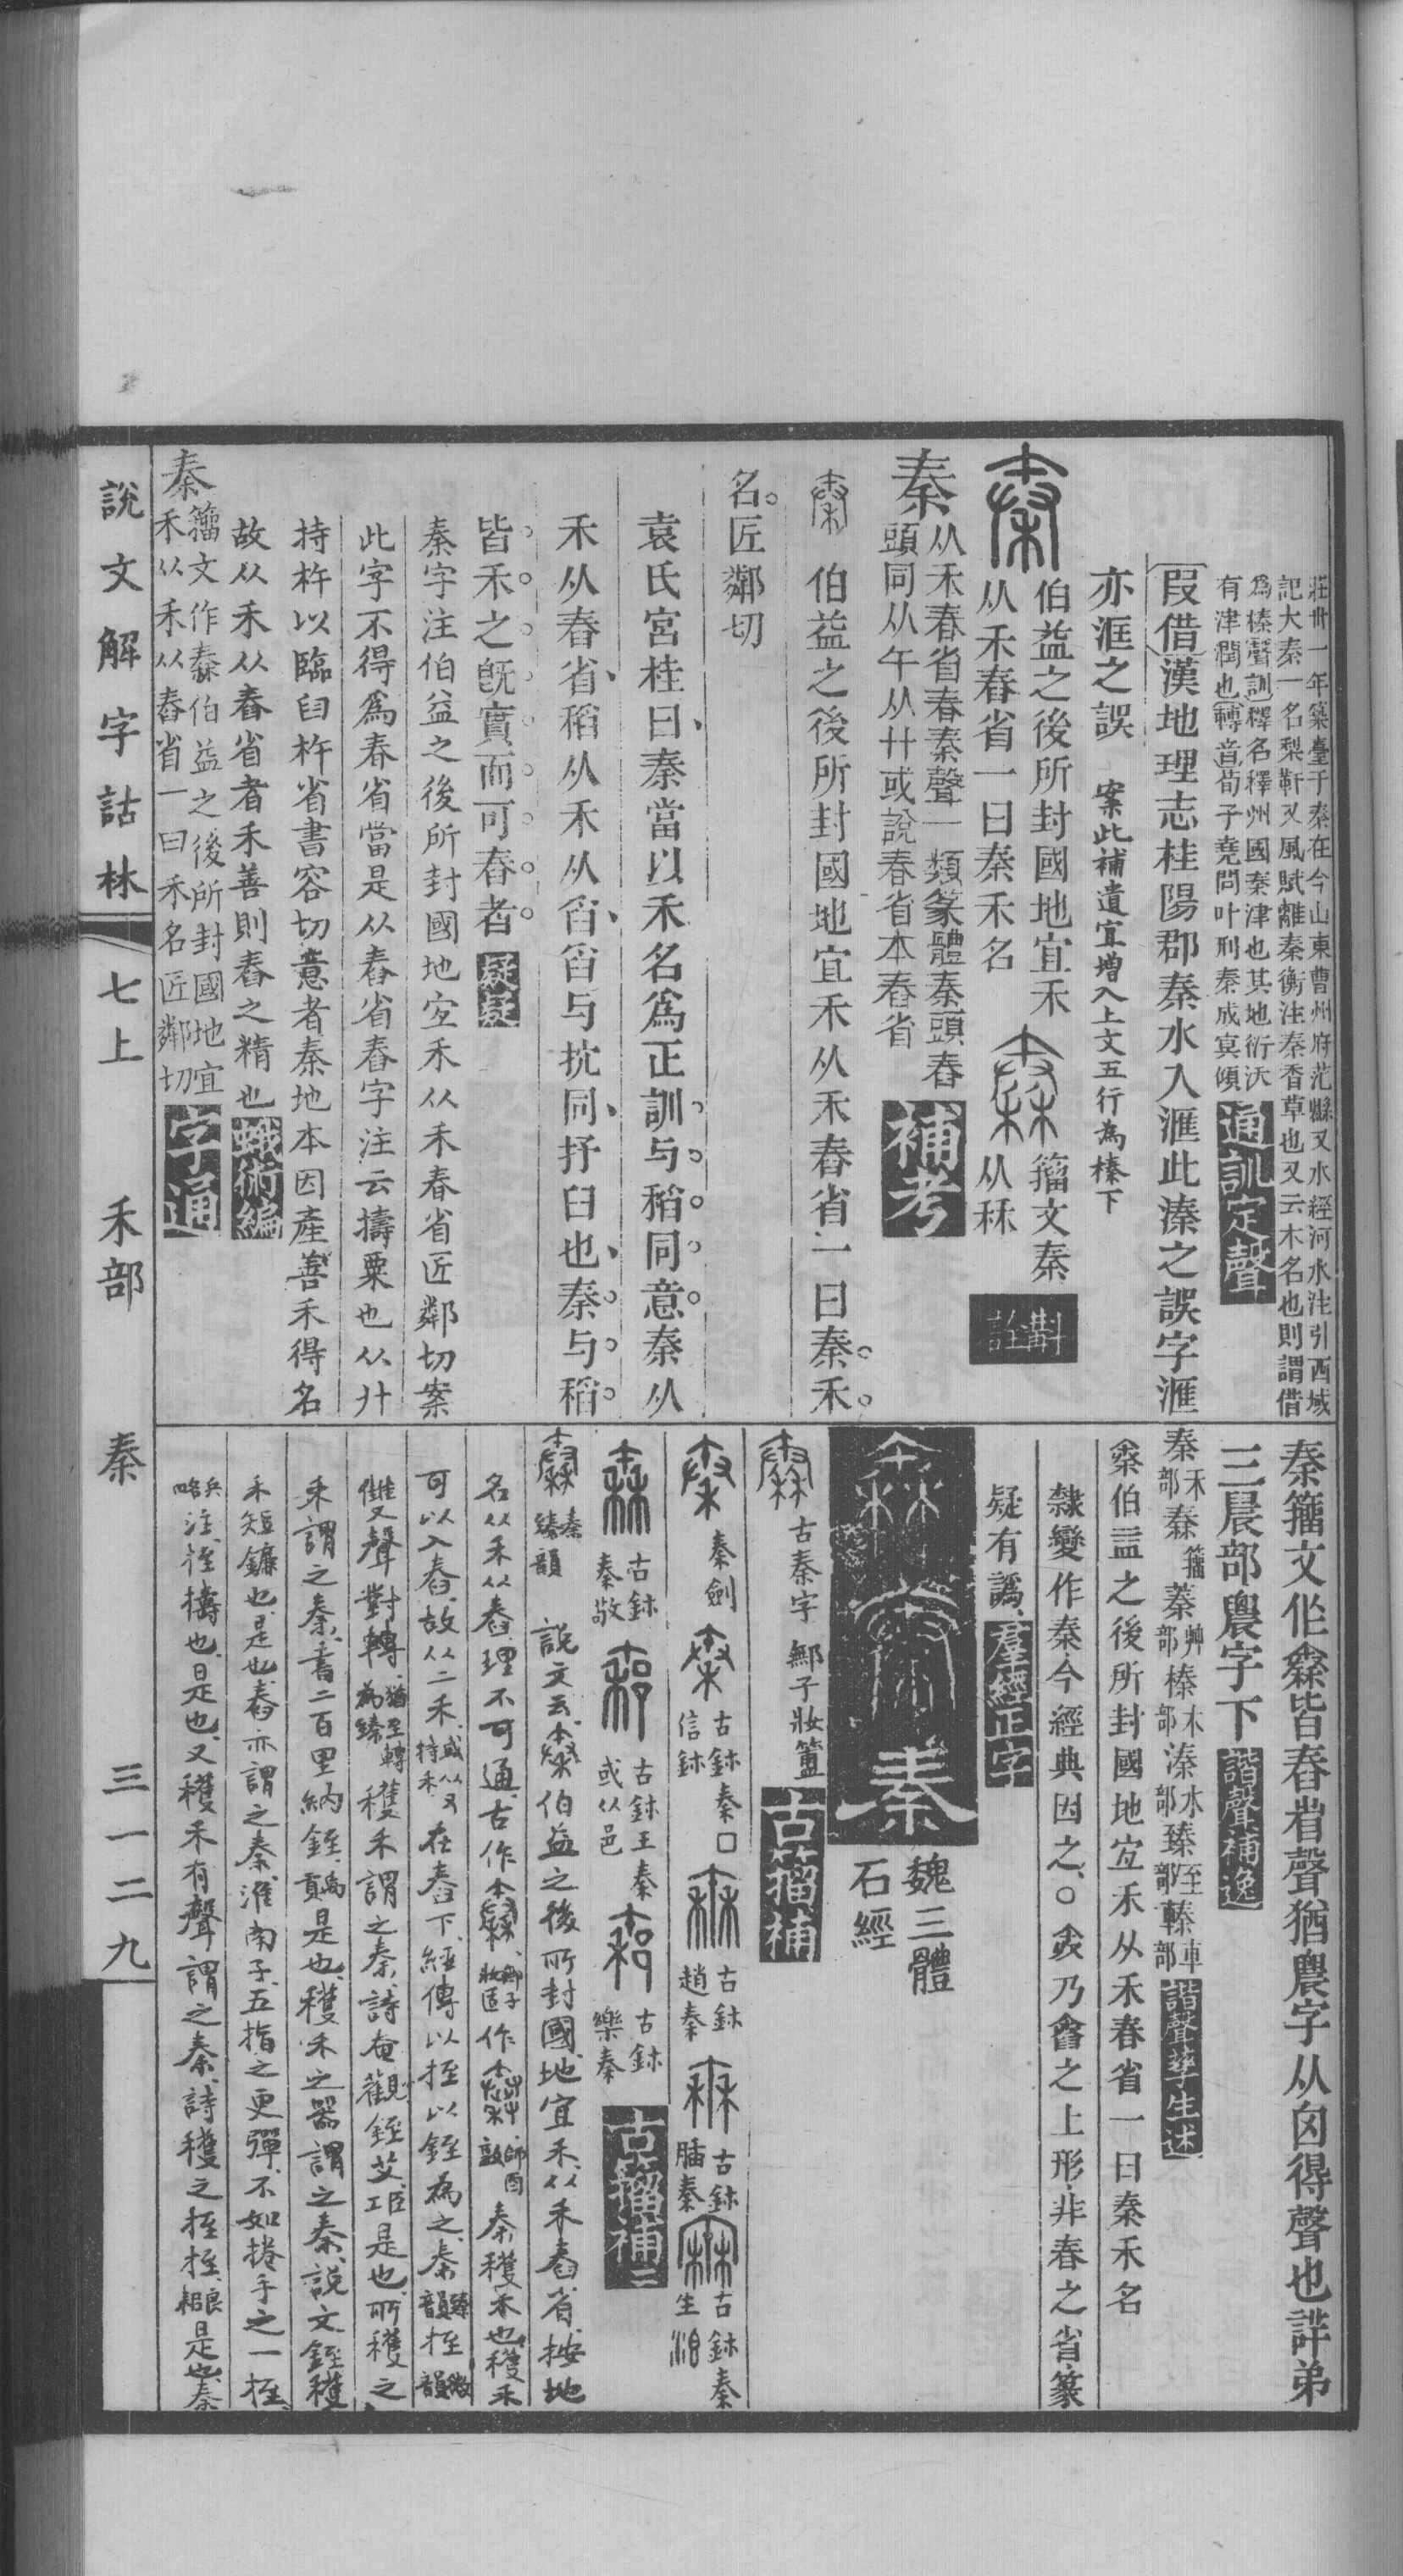 莊卅一年築臺于秦在今山東曹州府范縣又水經河水注引西域
記大秦一名梨靬又風賦離秦衡注秦香草也又云木名也則謂借
爲榛聲訓釋名釋州國秦津也其地衍沃
有津潤也轉音荀子堯問叶刑秦成冥傾
通訓定聲
叚借漢地理志桂陽郡秦水入滙此溱之誤字滙
亦洭之誤 案此補遺宜增入上文五行為榛下
伯益之後所封國地宜禾
从禾舂省一曰秦禾名
籒文秦
从秝
斠詮
秦
从禾舂省舂秦聲一類篆體秦頭舂
頭同从午从廾或說舂省本舂省
補考
伯益之後所封國地宜禾从禾舂省一曰秦禾
名匠鄰切
袁氏宮桂曰秦當以禾名爲正訓与稻同意秦从
禾从舂省稻从禾从舀舀与抗同抒臼也秦与稻
皆禾之旣實而可舂者
疑疑
秦字注伯益之後所封國地宐禾从禾舂省匠鄰切案
此字不得爲春省當是从舂省舂字注云擣粟也从廾
持杵以臨臼杵省書容切意者秦地本因產善禾得名
故从禾从舂省者禾善則舂之精也
蛾術編
秦
籒文作𥣢伯益之後所封國地宜
禾从禾从舂省一曰禾名匠鄰切
字通
說文解字詁林 七上 禾部 秦 三一二九
秦籒文作𥣢皆舂省聲猶農字从囟得聲也詳弟
三晨部農字下
諧聲補逸
秦禾部 𥣢籒 蓁艸部 榛木部 溱水部 臻至部 轃車部
諧聲孳生述
伯益之後所封國地宐禾从禾舂省一曰秦禾名
隸變作秦今經典因之○ 乃 之上形非春之省篆
疑有譌
羣經正字
秦
魏三體
石經
古秦字 鄦子妝簠
古籀補
秦劍
古鉢秦口
信鉢
古鉢
趙秦
古鉢
腯秦
古鉢秦
生
古鉢
秦敬
古鉢王秦
或从邑
古鉢
樂秦
古籀補二
秦
臻韻
說文云 伯益之後所封國地宜禾从禾舂省按地
名从禾从舂理不可通古作 鄦子妝𠤳作 師酉敦秦穫禾也穫禾
可以入舂故从二禾或从又持禾在舂下經傳以挃以銍為之秦臻韻挃微韻
雙聲對轉猶至轉為臻穫禾謂之秦詩奄觀銍艾臣工是也所穫之
禾謂之秦書二百里納銍禹貢是也穫禾之器謂之秦說文銍穫
禾短鐮也是也舂亦謂之秦淮南子五指之更彈不如捲手之一挃
兵略注挃擣也是也又穫禾有聲謂之秦詩穫之挃挃良耜是也秦